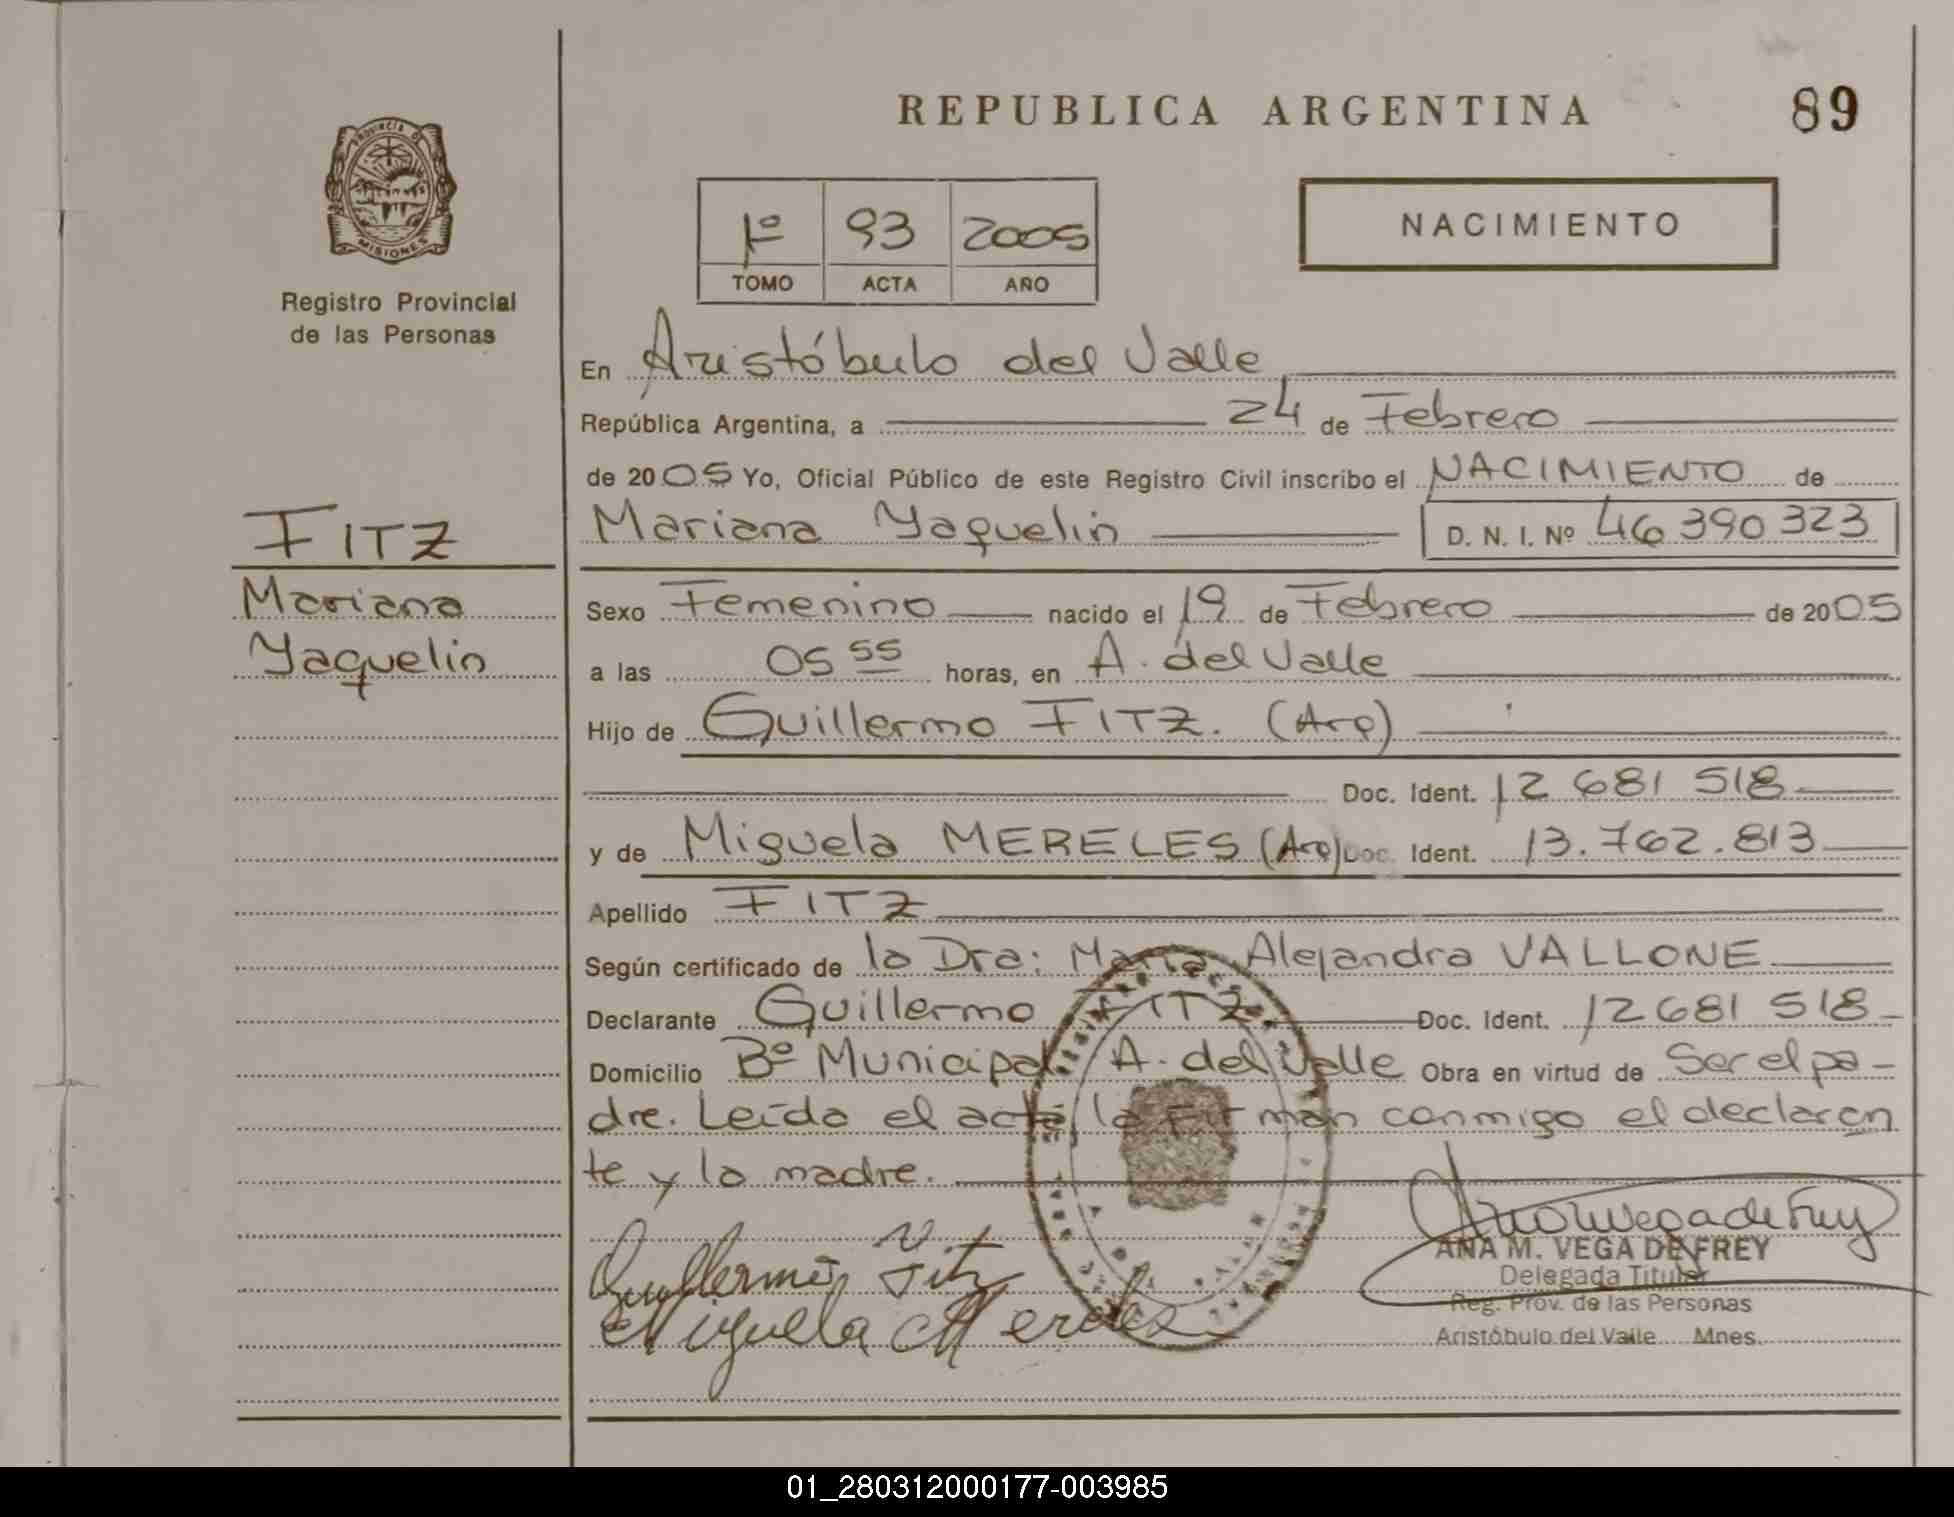 REPUBLICA ARGENTINA
89
PROVINCIA DE
MISIONES
Registro Provincial
de las Personas
1º 93 2005
TOMO ACTA AÑO
NACIMIENTO
En Aristóbulo del Valle
República Argentina, a 24 de Febrero
de 2005 Yo, Oficial Público de este Registro Civil inscribo el NACIMIENTO de
Mariana Yaquelin D. N. I. Nº 46 390 323
FITZ
Mariana
Yaquelin
Sexo Femenino nacido el 19 de Febrero de 2005
a las 05 55 horas, en A. del Valle
Hijo de Guillermo FITZ. (Arg)
Doc. Ident. 12 681 518
y de Miguela MERELES (Arg) Doc. Ident. 13.762.813
Apellido FITZ
Según certificado de la Dra: María Alejandra VALLONE
Declarante Guillermo FITZ Doc. Ident. 12 681 518
Domicilio Bº Municipal A. del Valle Obra en virtud de Ser el pa-
dre. Leída el acta, la firman conmigo el declaran
te y la madre.
Guillermo Fitz
Miguela Mereles
Ana M Vega de Frey
ANA M. VEGA DE FREY
Delegada Titular
Reg. Prov. de las Personas
Aristóbulo del Valle Mnes.
01_280312000177-003985